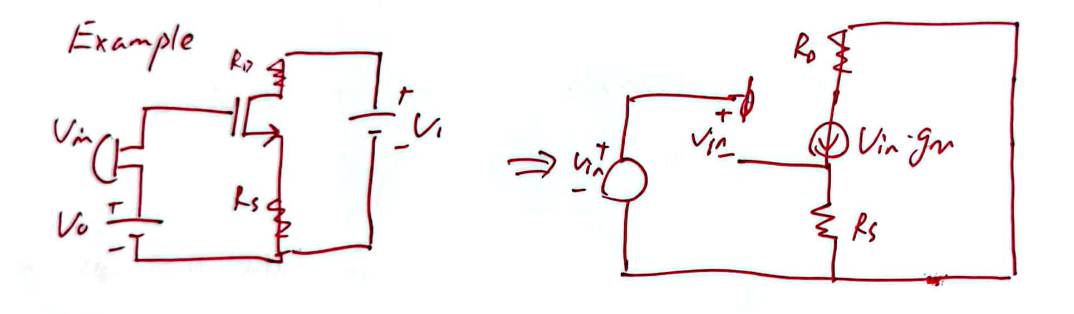 Example
RD
Vin
+
V1
-
Rs
V0
+
-
⇒
vin
+
-
+
vin
-
RD
Vin·gm
Rs